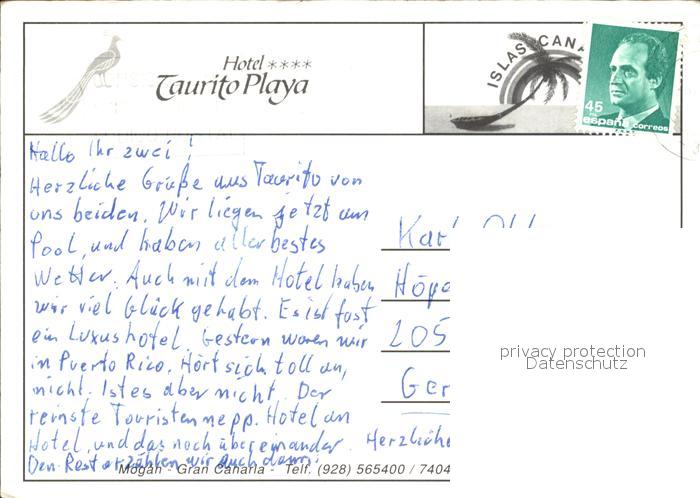 Hotel ****
Taurito Playa
ISLAS CANA
45
españa correos
Hallo Ihr zwei!
Herzliche Grüße aus Taurito von
uns beiden. Wir liegen jetzt am
Pool, und haben allerbestes
Wetter. Auch mit dem Hotel haben
wir viel Glück gehabt. Es ist fast
ein Luxushotel. Gestern waren wir
in Puerto Rico. Hört sich toll an,
nicht. Ist es aber nicht. Der
reinste Touristennepp. Hotel an
Hotel, und das noch übereinander.
Den Rest erzählen wir Euch dann!
Herzliche
205
Ger
privacy protection
Datenschutz
Mogán - Gran Canaria - Telf. (928) 565400 / 7404